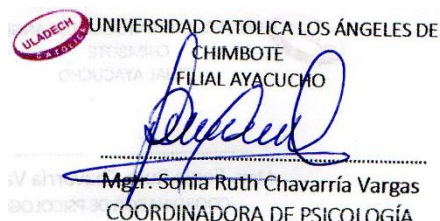 ULADECH
CATOLICA
UNIVERSIDAD CATOLICA LOS ÁNGELES DE
CHIMBOTE
FILIAL AYACUCHO
Mgtr. Sonia Ruth Chavarría Vargas
COORDINADORA DE PSICOLOGÍA